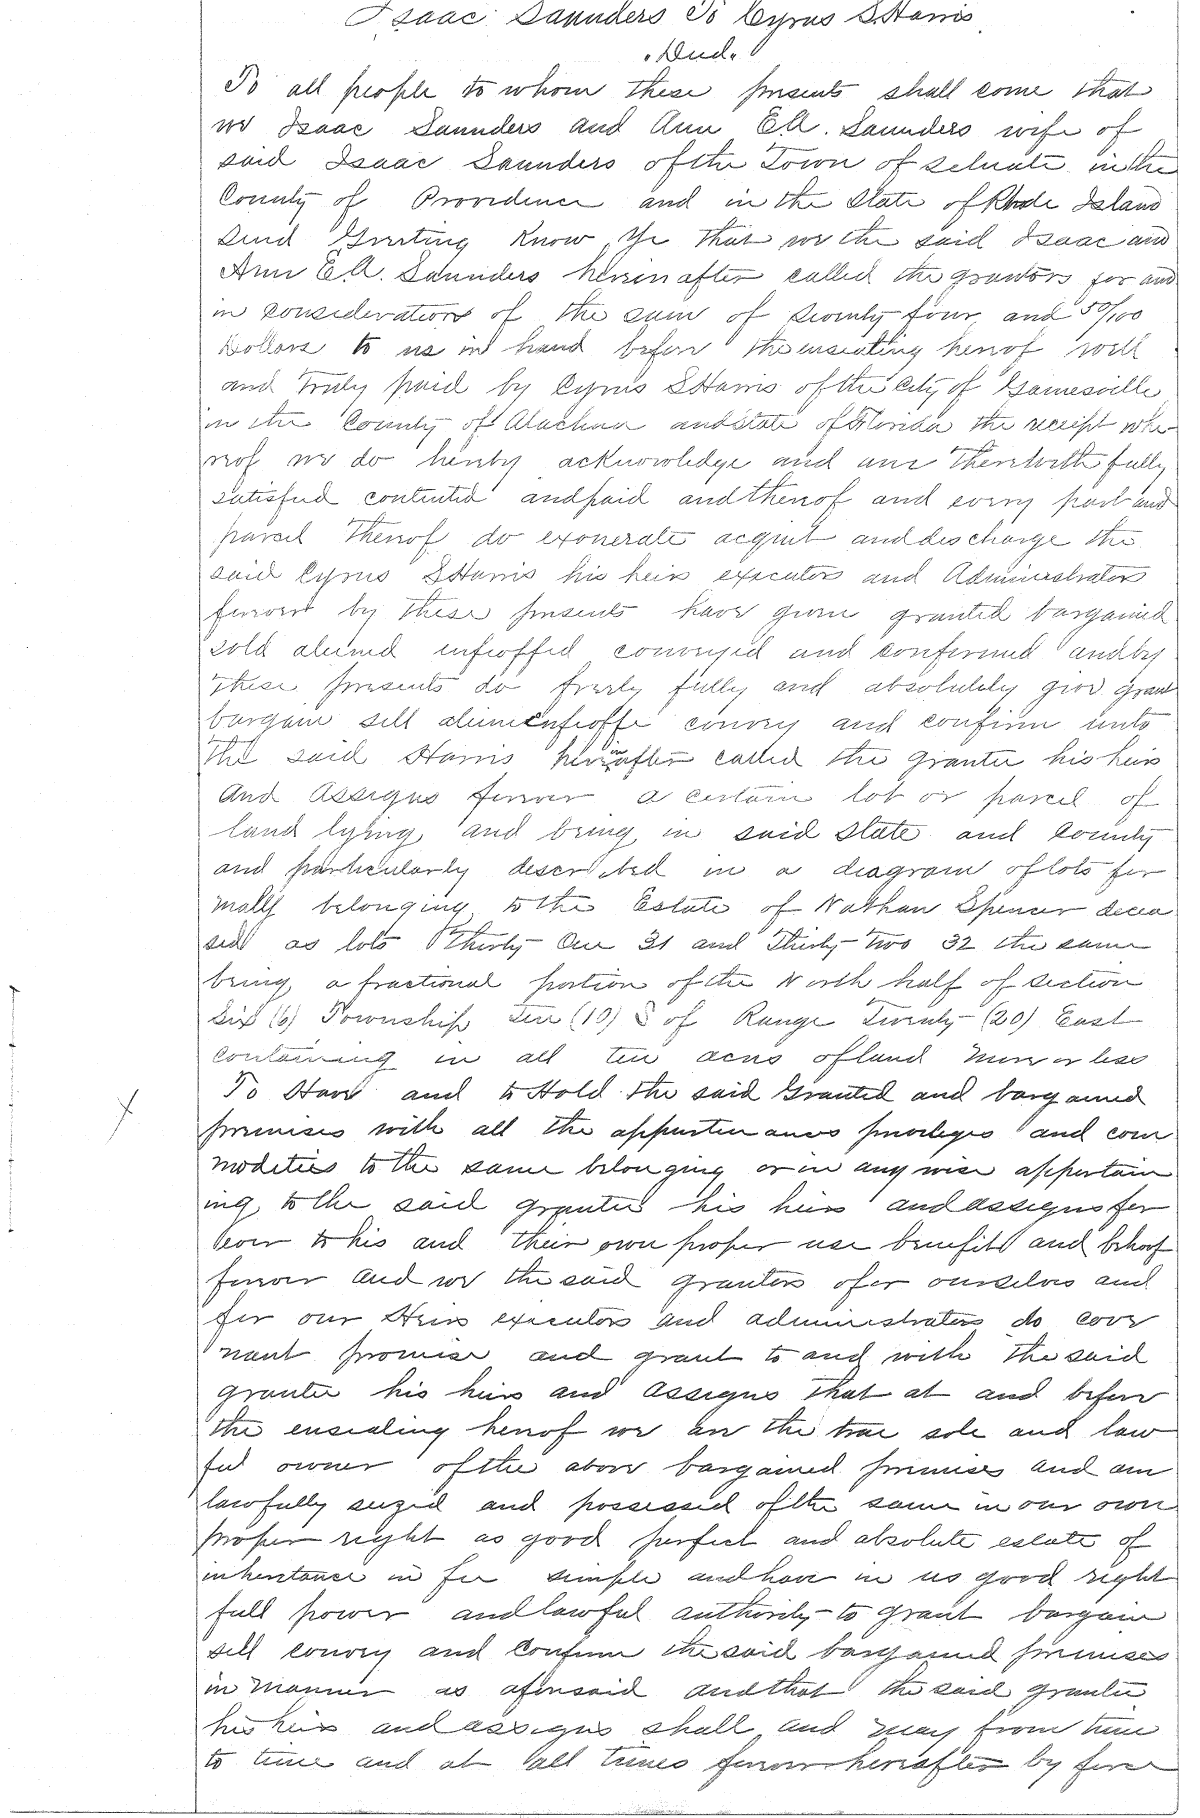 Isaac Saunders To Cyrus S Harris
"Deed"
To all people to whom these presents shall come that
we Isaac Saunders and Ann E.A. Saunders wife of
said Isaac Saunders of the Town of Scituate in the
County of Providence and in the State of Rhode Island
Send Greeting Know Ye that we the said Isaac and
Ann E.A. Saunders hereinafter called the grantors for and
in consideration of the sum of seventy four and 50/100
Dollars to us in hand before the ensealing hereof well
and truly paid by Cyrus S Harris of the City of Gainesville
in the County of Alachua and State of Florida the receipt whe-
reof we do hereby acknowledge and are Therewith fully
satisfied contented and paid and thereof and every part and
parcel thereof do exonerate acquit and discharge the
said Cyrus S Harris his heirs executors and Administrators
forever by these presents have given granted bargained
sold aliened enfeoffed conveyed and confirmed and by
these presents do freely fully and absolutely give grant
bargain sell alien enfeoffe convey and confirm unto
the said Harris hereinafter called the grantee his heirs
and assigns forever a certain lot or parcel of
land lying and being in said State and County
and particularly described in a diagram of lots for
mally belonging to the Estate of Nathan Spencer decea
sed as lots Thirty One 31 and Thirty-two 32 the same
being a fractional portion of the North half of section
Six (6) Township Ten (10) S of Range Twenty (20) East
containing in all ten acres of land more or less
To Have and to Hold the said Granted and bargained
premises with all the appurtenances privileges and com
modities to the same belonging or in any wise appertain
ing to the said grantee his heirs and assigns for
ever to his and their own proper use benefit and behoof
forever and we the said grantors for ourselves and
for our Heirs executors and administrators do cove
nant promise and grant to and with the said
grantee his heirs and assigns that at and before
the ensealing hereof we are the true sole and law
ful owner of the above bargained premises and am
lawfully seized and possessed of the same in our own
proper right as good perfect and absolute estate of
inheritance in fee simple and have in us good right
full power and lawful authority to grant bargain
sell convey and confirm the said bargained premises
in manner as aforesaid and that the said grantee
his heirs and assigns shall and may from time
to time and at all times forever hereafter by force